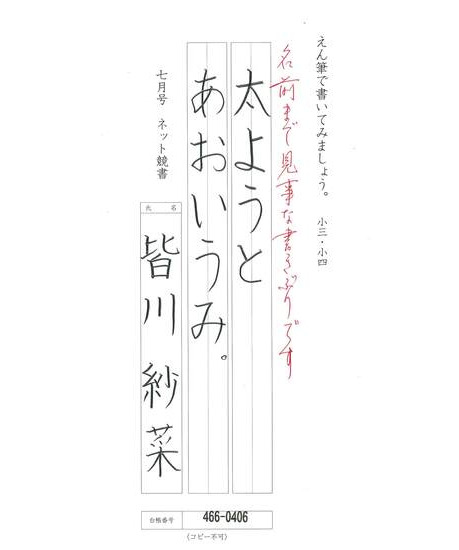 えん筆で書いてみましょう。 小三・小四
名前まで見事な書きぶりです
太ようと
あおいうみ。
七月号 ネット競書
氏名
皆川 紗菜
台帳番号 466-0406
(コピー不可)